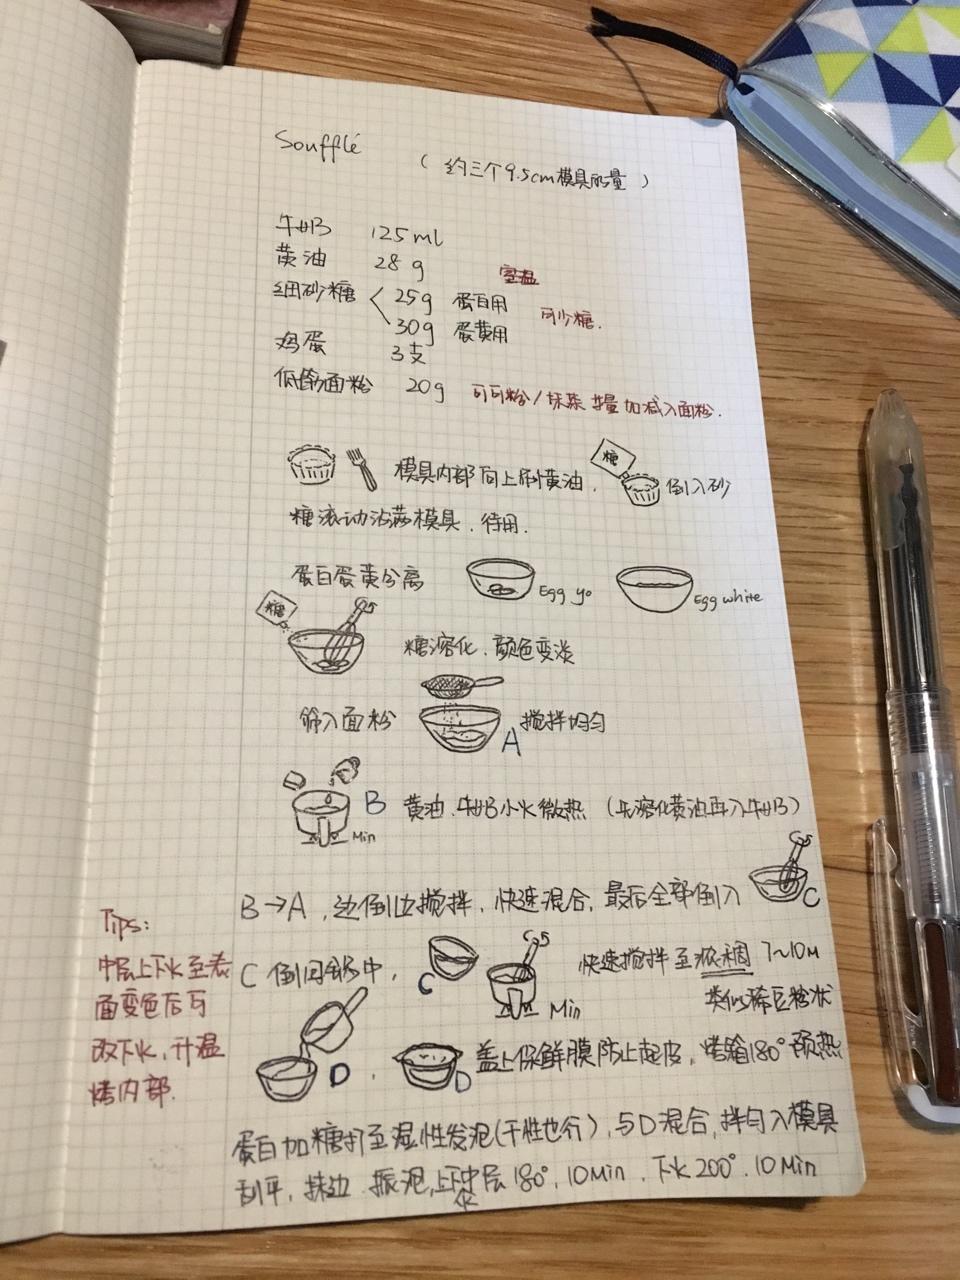 Soufflé
( 约三个9.5cm模具的量 )
牛奶 125ml
黄油 28g
室温
细砂糖 25g 蛋白用
30g 蛋黄用
可少糖.
鸡蛋 3支
低筋面粉 20g
可可粉/抹茶 等量加减入面粉.
模具内部向上刷黄油. 糖 倒入砂
糖滚动沾满模具. 待用.
蛋白蛋黄分离 Egg yo Egg white
糖 糖溶化. 颜色变淡
筛入面粉 A 搅拌均匀
B Min 黄油.牛奶小火微热 (先溶化黄油再入牛奶)
B→A, 边倒边搅拌, 快速混合, 最后全部倒入 C
C 倒回锅中, C Min 快速搅拌至浓稠 7~10M
类似稀豆粉状
D, D 盖上保鲜膜防止起皮, 烤箱180°预热
蛋白加糖打至湿性发泡(干性也行), 与D混合, 拌匀入模具
刮平, 抹边. 振泡, 上下火中层180°, 10Min. 下火200°. 10Min
Tips:
中层上下火至表
面变色后可
改下火, 升温
烤内部.